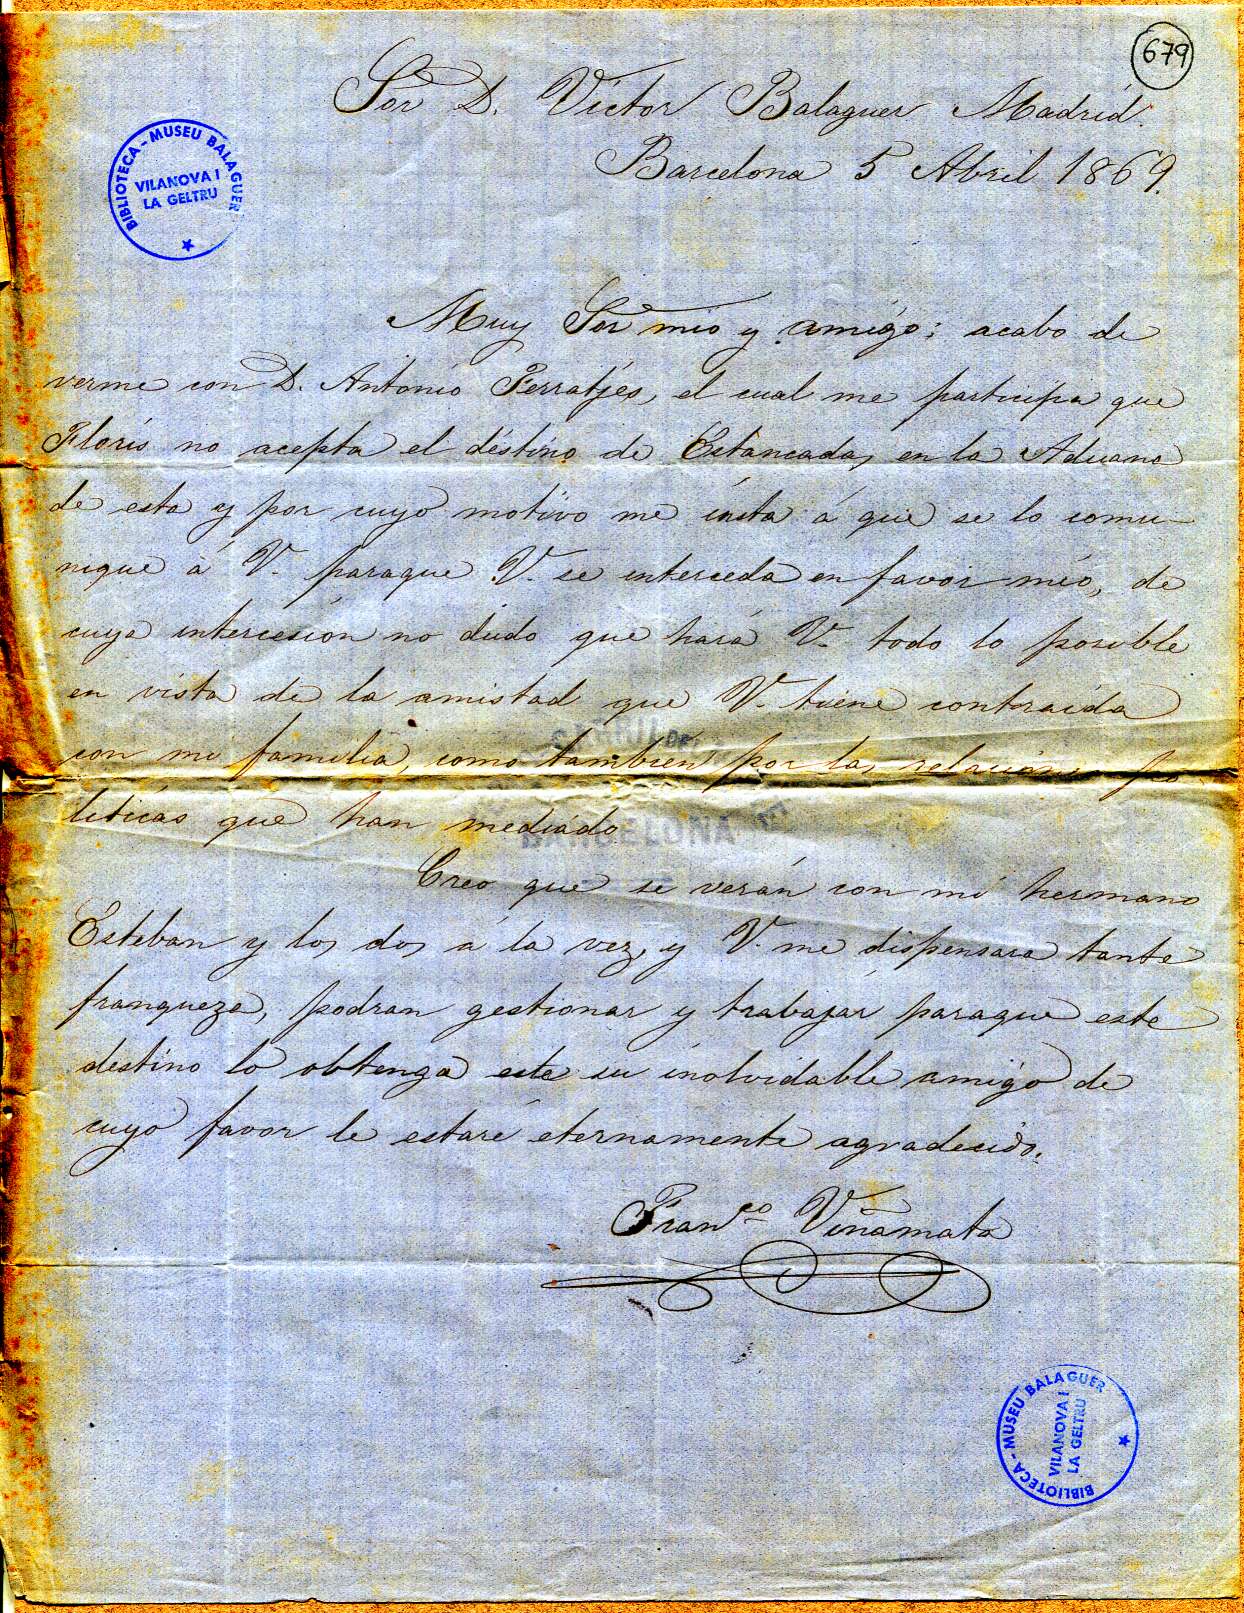 679
Sor D. Víctor Balaguer Madrid.
Barcelona 5 Abril 1869.
BIBLIOTECA - MUSEU BALAGUER
VILANOVA I
LA GELTRU
Muy Sor mio y amigo; acabo de
verme con D. Antonio Ferratjes, el cual me participa que
Floris no acepta el destino de Estancadas en la Aduana
de esta y por cuyo motivo me insta á que se lo comu-
nique á V. paraque V. se interceda en favor mio, de
cuya intercesion no dudo que hará V. todo lo posible
en vista de la amistad que V. tiene contraida
con mi familia, como tambien por las relaciones po
liticas que han mediado
BARCELONA
Creo que se verán con mi hermano
Esteban y los dos á la vez, y V. me dispensara tanta
franqueza, podran gestionar y trabajar paraque este
destino lo obtenga este su inolvidable amigo de
cuyo favor le estaré eternamente agradecido.
Franco Viñamata
BIBLIOTECA - MUSEU BALAGUER
VILANOVA I
LA GELTRU